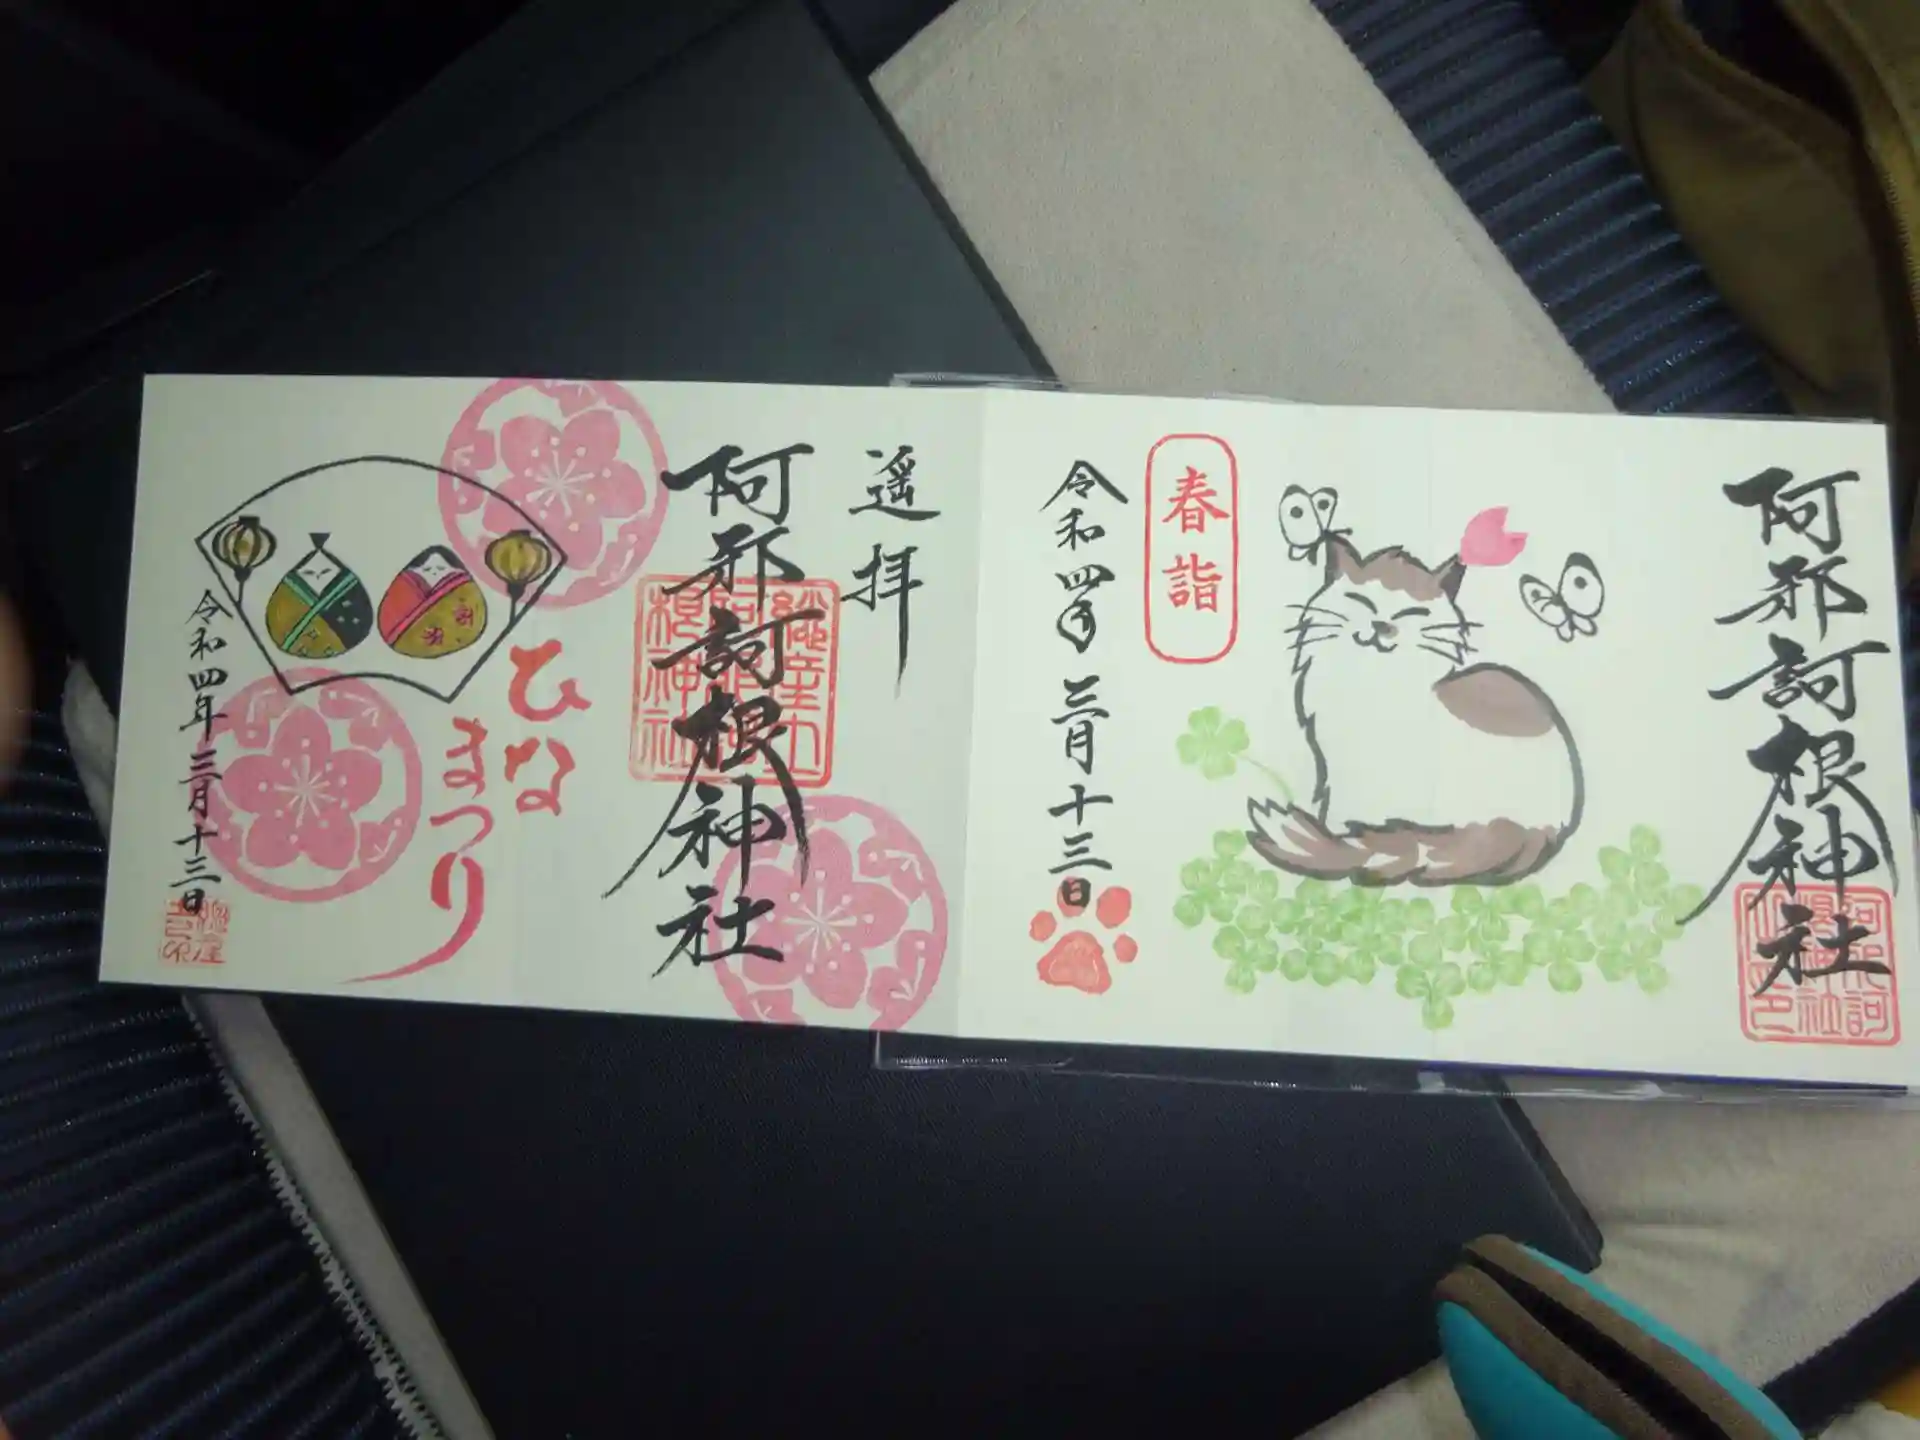 阿邪訶根神社
春詣
令和四年三月十三日
遥拝
阿邪訶根神社
ひな
まつり
令和四年三月十三日